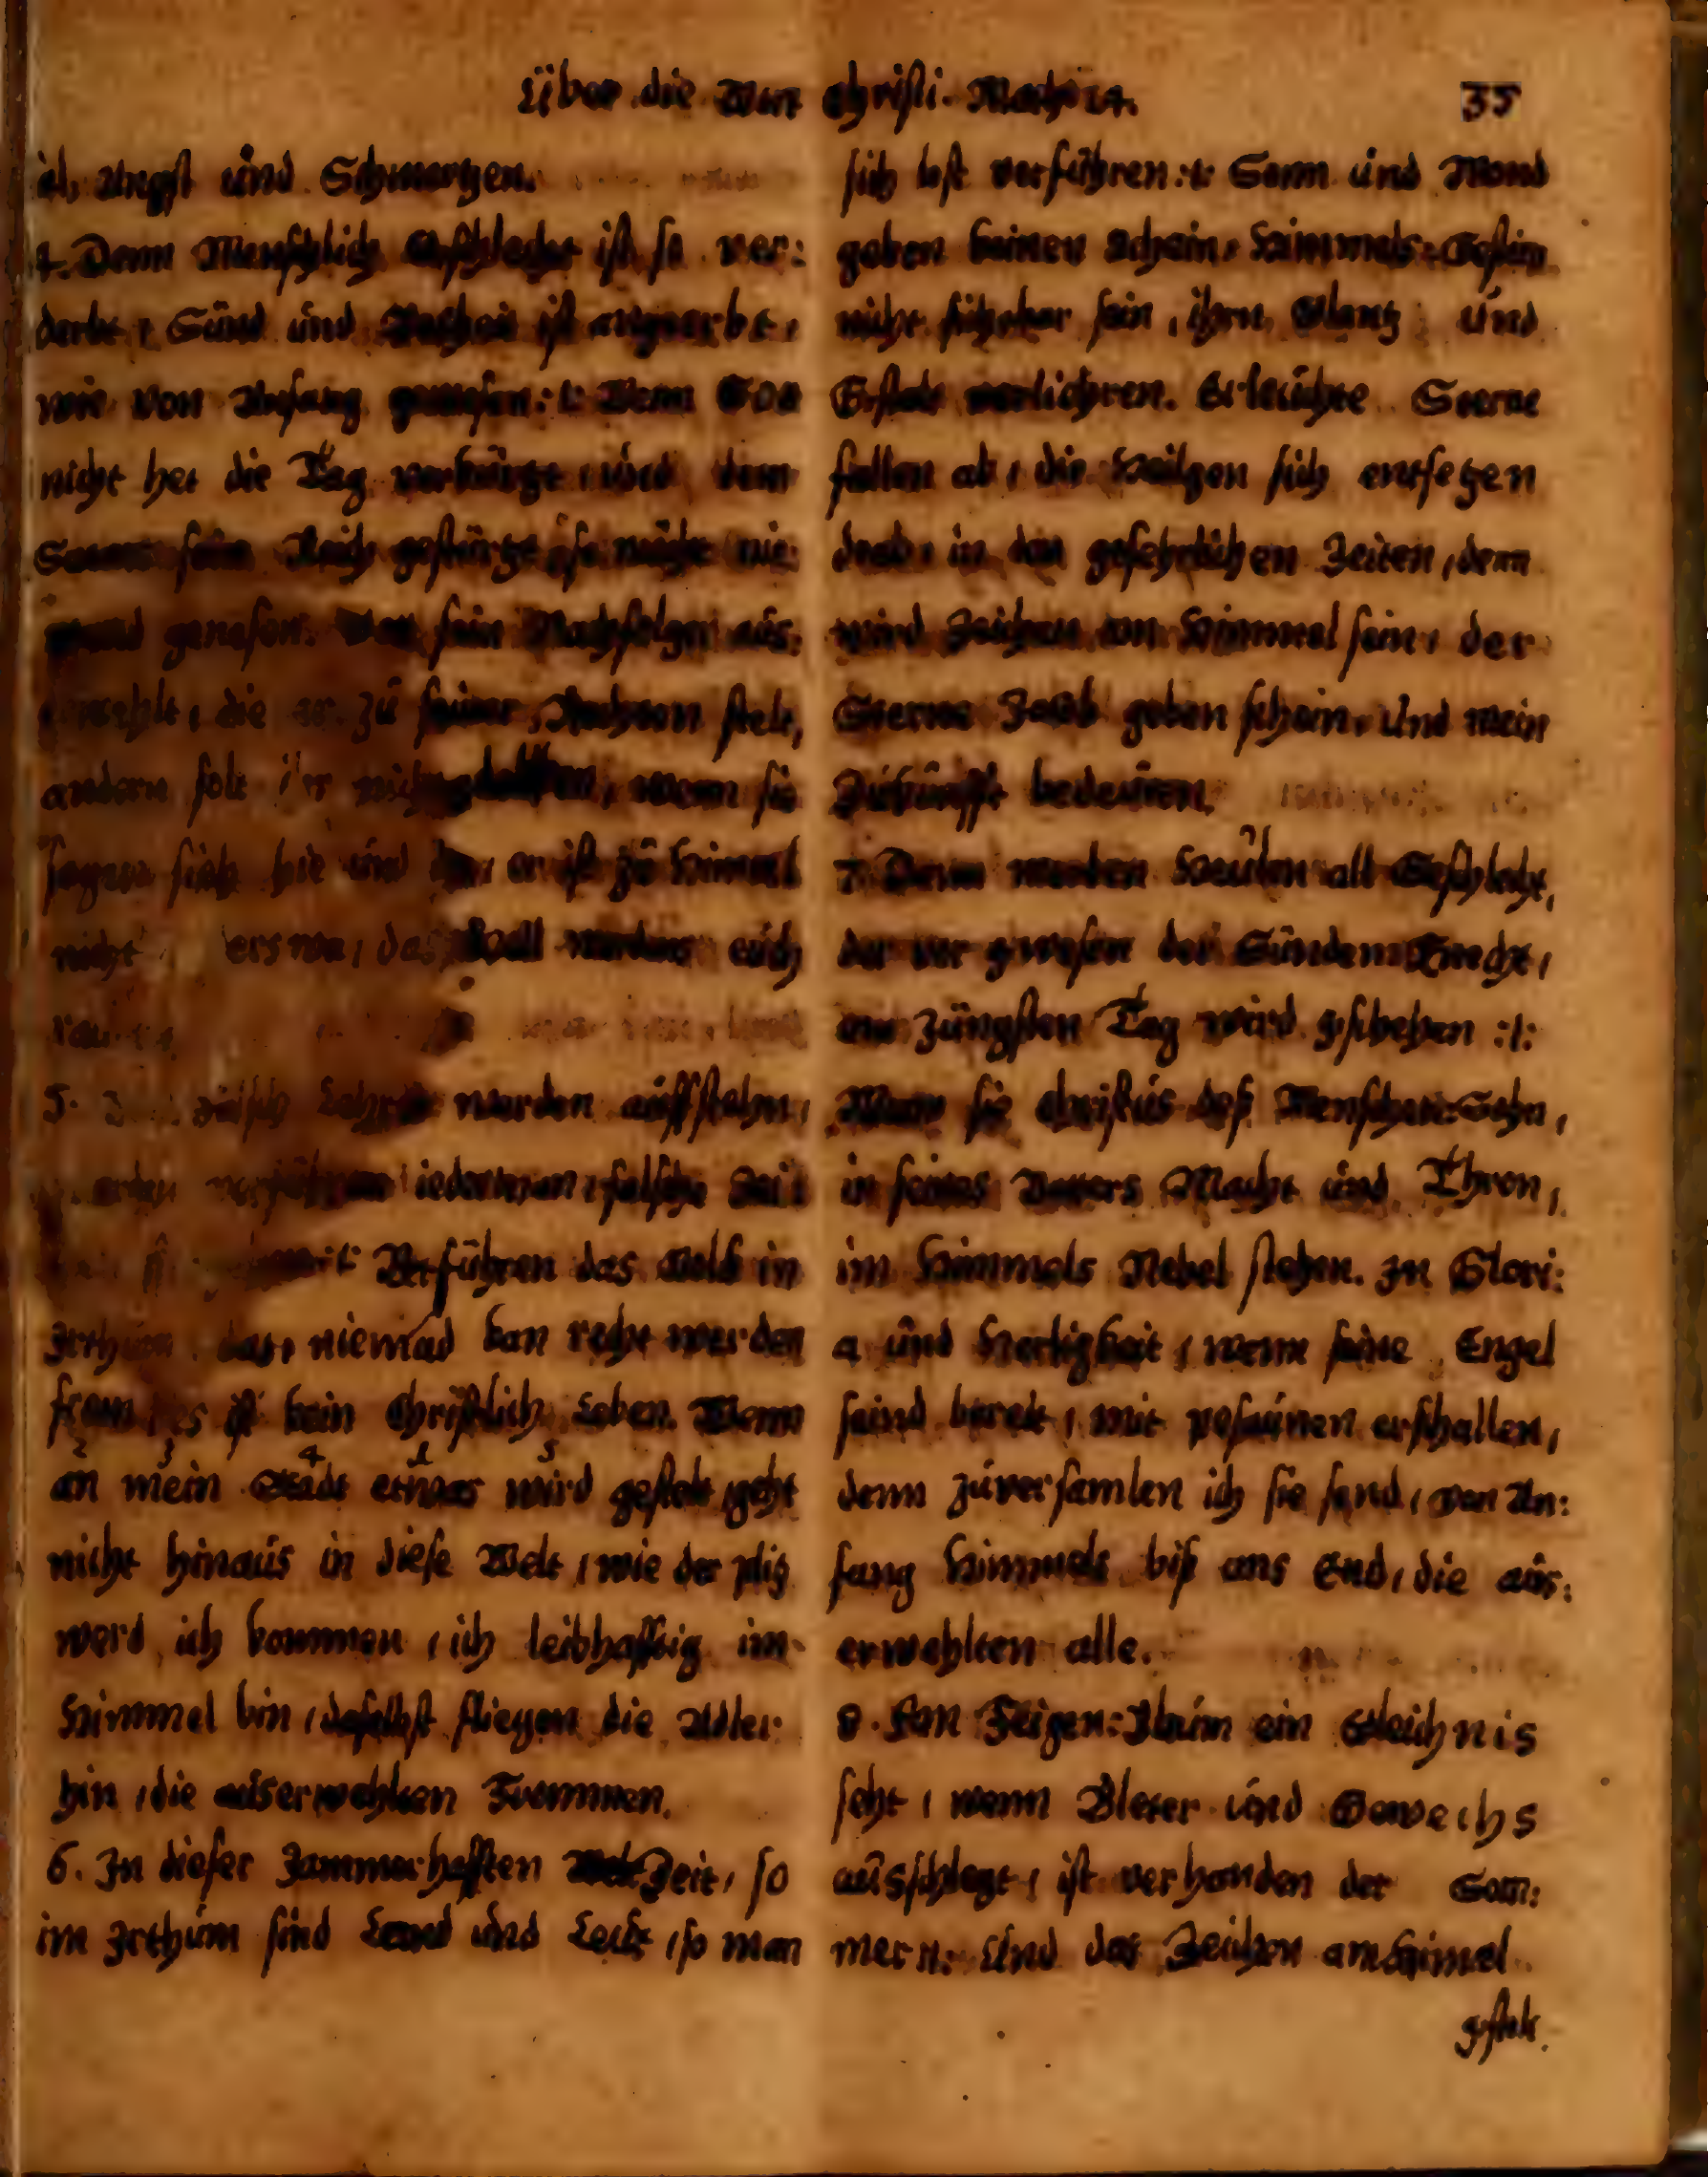 Über die Wort Christi. Math 24. 35
Angst und Schmertzen.
4. Denn Menschlich Geschlecht ist so ver:
derbt, Sünd und Boßheit ist angeerbt,
wie von Anfang gewesen :/: Wenn Got
nicht het die Tag verkürtzt, und dem
sein Reich gestürtzt, so möcht nie:
mand genesen. sein Nachfolger aus:
erwehlt, die er zu seiner Rechten stelt,
andern solt ihr nicht, wenn sie
sagen sieh hie und er ist zu Himmel
nicht das werden euch
5. falsch Lehrer werden auffstehn,
verführen iederman, falsche
Verführen das Volck in
Irthum das niemad kan recht werden
from, es ist kein Christlich Leben. Wenn
an mein Stadt etwas wird gestelt, geht
nicht hinaus in diese Welt, wie der plitz
werd ich kommen, ich leibhafftig im
Himmel bin, daselbst fliegen die Adler
hin, die auserwehlten Frommen.
6. In dieser Jammerhafften Zeit, so
im Irthum sind Land und Leut, so man
sich lest verführen :/: Sonn und Mond
geben keinen schein, Himmels-Gestirn
nicht sichtbar sein, ihrn Glantz und
Gestalt verliehren. Erleuchte Sterne
fallen ab, die Heilgen sich entsetzen
drob, in den gefehrlichen Zeiten, denn
wird Zeichen am Himmel sein, der
Sterne Jacob geben schein, Und mein
Zukunfft bedeuten.
7. Denn werden Heulen all Geschlecht,
der vor gewesen der Sünden Knecht,
am Jüngsten Tag wird geschehen :/:
Wenn sie Christus deß Menschen: Sohn,
in seines Vatters Macht und Thron,
im Himmels Nebel stehen. In Glori:
a und Herligkeit, wenn seine Engel
seind bereit, mit posaunen erschallen,
denn zuversamlen ich sie send, von An:
fang Himmels biß ans End, die aus:
erwehlten alle.
8. Feigen: Baum ein Gleichnis
seht, wenn Bleter und Gewechs
ausschlegt, ist verhanden der Som:
mer :/: Und das Zeichen am Himel
gestelt.